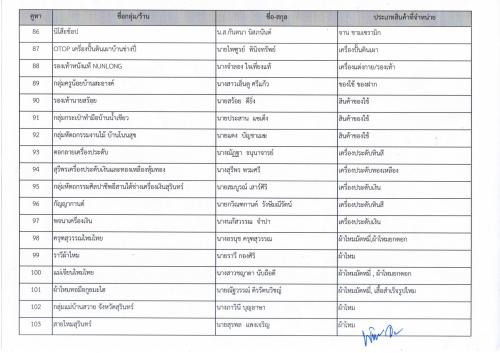 คูหา ชื่อกลุ่ม/ร้าน ชื่อ-สกุล ประเภทสินค้าที่จำหน่าย
86 นิโส๊ะช้อป น.ส.กันตนา นิสภนันต์ จาน ชามเซรามิก
87 OTOP เครื่องปั้นดินเผาบ้านช่างปี่ นายไพฑูรย์ เครื่องปั้นดินเผา
88 รองเท้าหนังแท้ NUNLONG นางจำลอง ใจเที่ยงแท้ เครื่องแต่งกาย/รองเท้า
89 กลุ่มครูน้อยบ้านสะอางค์ นางสาวเอ็นดู ศรีแก้ว ของใช้ ของฝาก
90 รองเท้านายสร้อย นายสร้อย ดียิ่ง สินค้าของใช้
91 กลุ่มกระเป๋าทำมือบ้านน้ำเขียว นายประสาน แซ่เต็ง สินค้าของใช้
92 กลุ่มหัตถกรรมงานไม้ บ้านโนนสุข นายแดง บัญชาเมฆ สินค้าของใช้
93 ดอกลายเครื่องประดับ นางณัฏฐา ธนูนาจารย์ เครื่องประดับหินสี
94 สุริพรเครื่องประดับเงินและทองเหลืองหุ้มทอง นางสุริพร พรมศรี เครื่องประดับทองเหลือง
95 กลุ่มหัตถกรรมศิลปาชีพอีสานใต้ช่างเครื่องเงินสุรินทร์ นายสมบูรณ์ เสาร์ศิริ เครื่องประดับเงิน
96 กัญญากานต์ นายกวิณฑกานต์ เครื่องประดับหินสี
97 พจนาเครื่องเงิน นางนภัสวรรณ จำปา เครื่องประดับเงิน
98 ครุฑสุวรรณไหมไทย นางอรนุช ครุฑสุวรรณ ผ้าไหมมัดหมี่,ผ้าไหมยกดอก
99 ราวีผ้าไหม นายราวี กองศิริ ผ้าไหม
100 แม่เขียนไหมไทย นางสาวชญาดา นับถือดี ผ้าไหมมัดหมี่ , ผ้าไหมยกดอก
101 ผ้าไหมทอมือภูธมะไส นายณัฐวรรณ์ ผ้าไหมมัดหมี่, เสื้อสำเร็จรูปไหม
102 กลุ่มแม่บ้านสวาย จังหวัดสุรินทร์ นางภาวินี บุญอาษา ผ้าไหม
103 สายไหมสุรินทร์ นายสุรพล แพงเจริญ ผ้าไหม